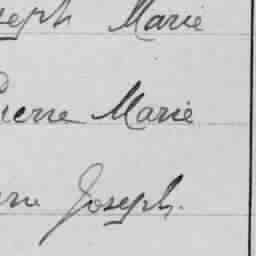 Joseph Marie
Pierre Marie
Joseph.